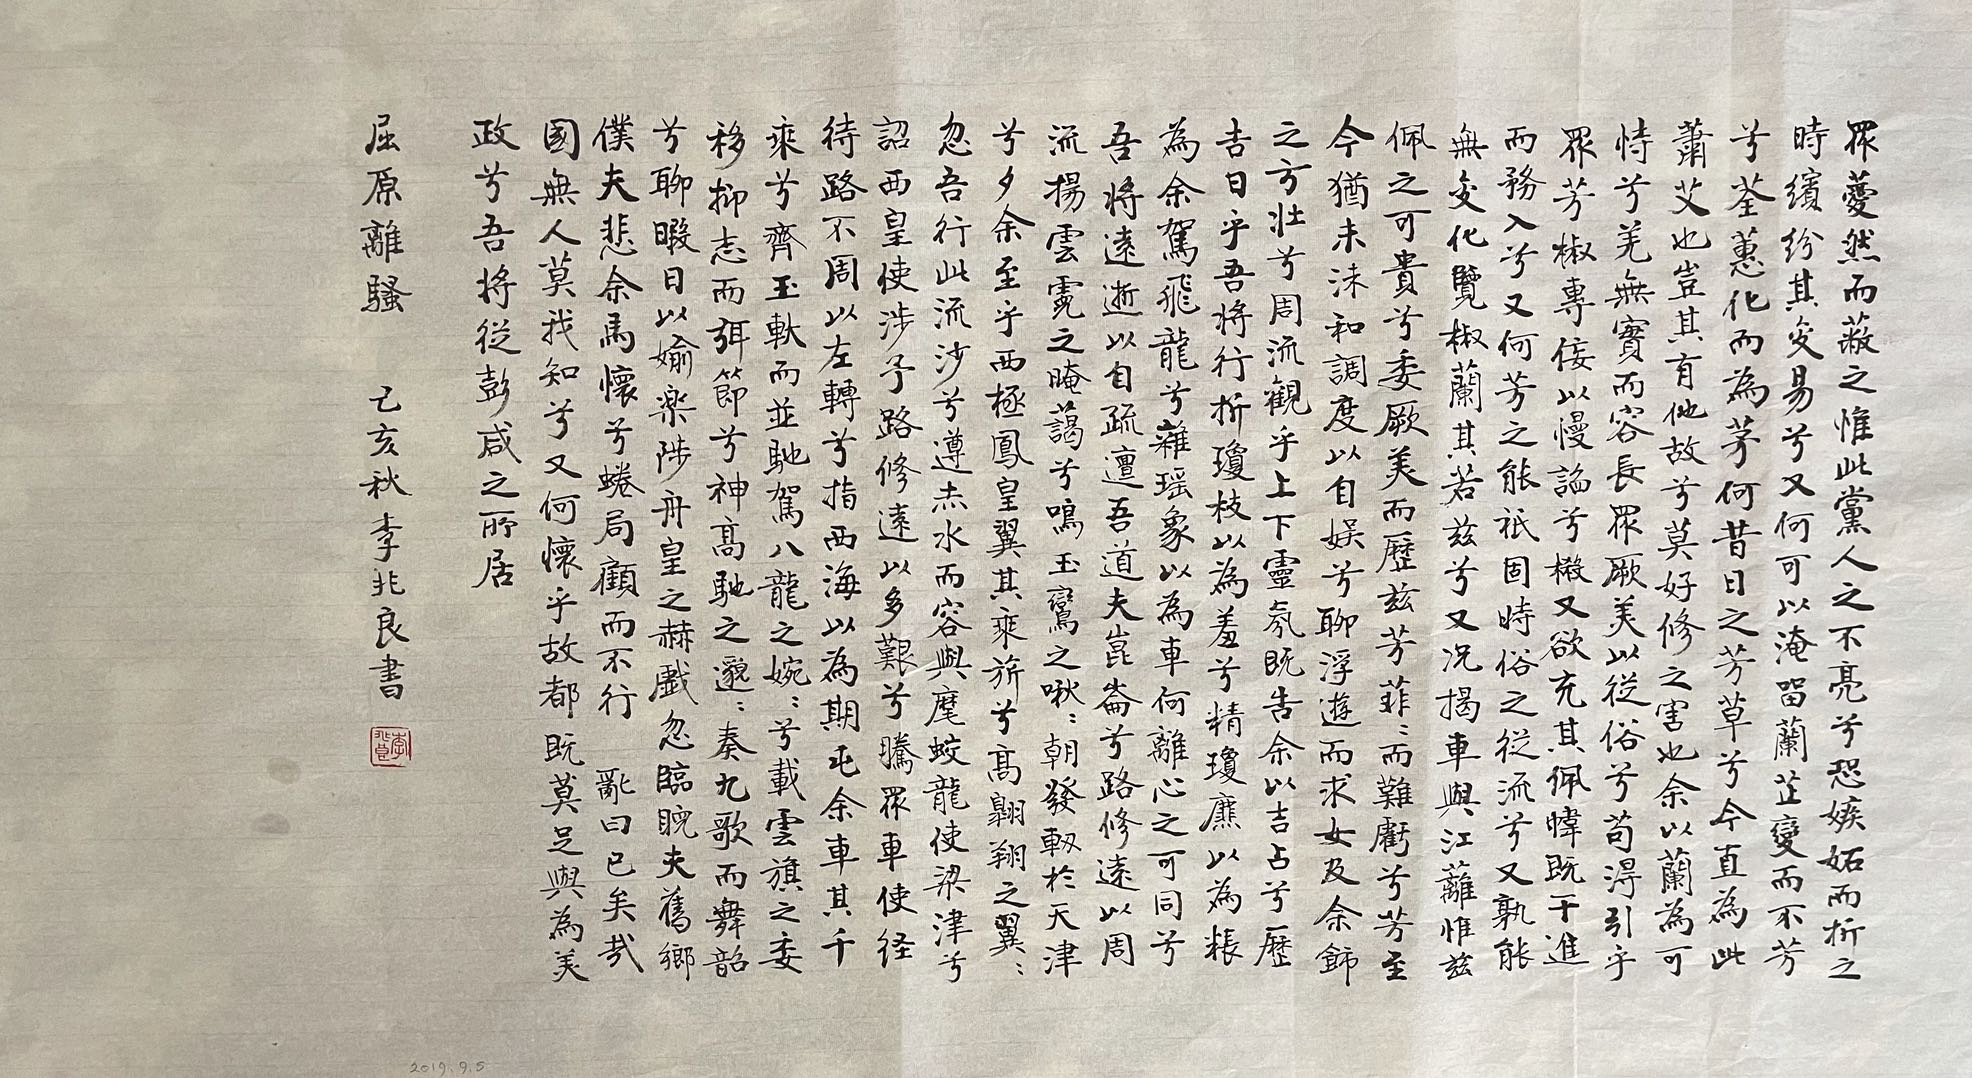 眾薆然而蔽之惟此黨人之不亮兮恐嫉妬而折之
時繽紛其変易兮又何可以淹留蘭芷變而不芳
兮荃蕙化而為茅何昔日之芳草兮今直為此
蕭艾也豈其有他故兮莫好修之害也余以蘭為可
恃兮羌無實而容長眾厥美以從俗兮苟得引乎
眾芳椒專佞以慢謟兮樧又欲充其佩幃既干進
而務入兮又何芳之能祇固時俗之從流兮又孰能
無変化覽椒蘭其若茲兮又況揭車與江蘺惟茲
佩之可貴兮委厥美而歷茲芳菲〻而難虧兮芳至
今猶未沬和調度以自娛兮聊浮遊而求女及余飾
之方壯兮周流觀乎上下靈氛既告余以吉占兮歷
吉日乎吾將行折瓊枝以為羞兮精瓊爢以為粻
為余駕飛龍兮雜瑶象以為車何離心之可同兮
吾將遠逝以自疏邅吾道夫崑崙兮路修遠以周
流揚雲霓之晻藹兮鳴玉鸞之啾〻朝發軔於天津
兮夕余至乎西極鳳皇翼其乘旂兮高翺翔之翼〻
忽吾行此流沙兮遵赤水而容與麾蛟龍使梁津兮
詔西皇使涉予路修遠以多艱兮騰眾車使径
待路不周以左轉兮指西海以為期屯余車其千
乘兮齊玉軑而並馳駕八龍之婉〻兮載雲旗之委
移抑志而弭節兮神高馳之邈〻奏九歌而舞韶
兮聊暇日以媮楽陟升皇之赫戲忽臨睨夫舊鄉
僕夫悲余馬懷兮蜷局顧而不行 亂曰已矣哉
國無人莫我知兮又何懷乎故都既莫足與為美
政兮吾將從彭咸之所居
屈原離騷 己亥秋 李兆良書
李兆良
2019.9.5